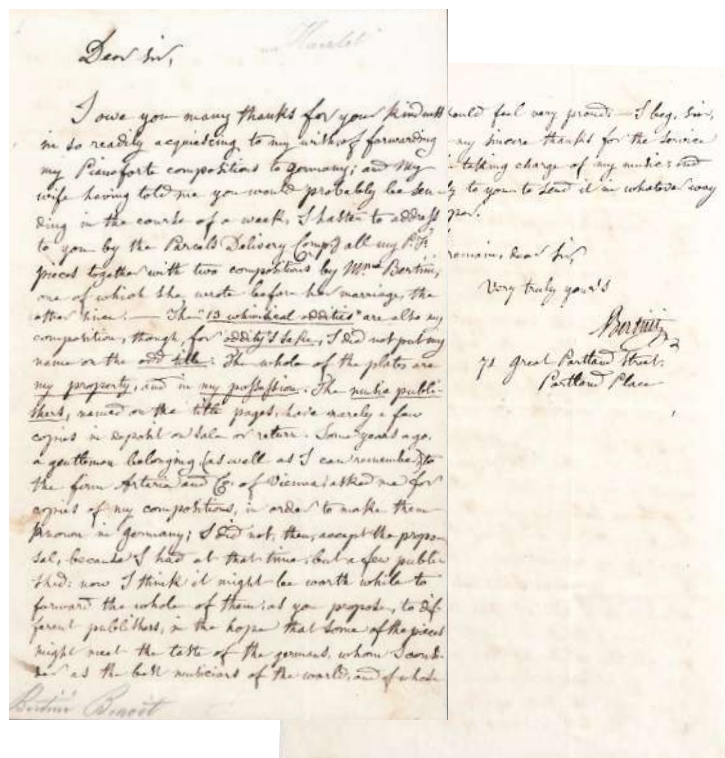 Dear Sir,
I owe you many thanks for your kindness
in so readily acquiescing to my wish of forwarding
my Pianoforte compositions to Germany; and my
wife having told me you would probably be sen-
ding in the course of a week, I hasten to address
to you by the Parcels Delivery Compy all my P. F.
pieces together with two compositions by Mme Bertini,
one of which she wrote before her marriage, the
other since: — The "13 whimsical oddities" are also my
composition, though, for oddity's sake, I did not put my
name on the odd title: The whole of the plates are
my property, and in my possession. The music publi-
shers, named on the title pages, have merely a few
copies in deposit on sale or return. Some years ago,
a gentleman belonging (as well as I can remember) to
the firm Artaria and Co. of Vienna asked me for
copies of my compositions, in order to make them
known in Germany; I did not, then, accept the propo-
sal, because I had at that time but a few publi-
shed: now I think it might be worth while to
forward the whole of them, as you propose, to dif-
ferent publishers, in the hope that some of the pieces
might meet the taste of the germans, whom I consi-
der as the best musicians of the world, and of whose
Bertini Benoit
ould feel very proud. — I beg, Sir,
my sincere thanks for the service
taking charge of my music; and
to you to send it in whatever way
per.
remain, dear Sir,
Very truly your's
Bertini
71 Great Portland Street.
Portland Place